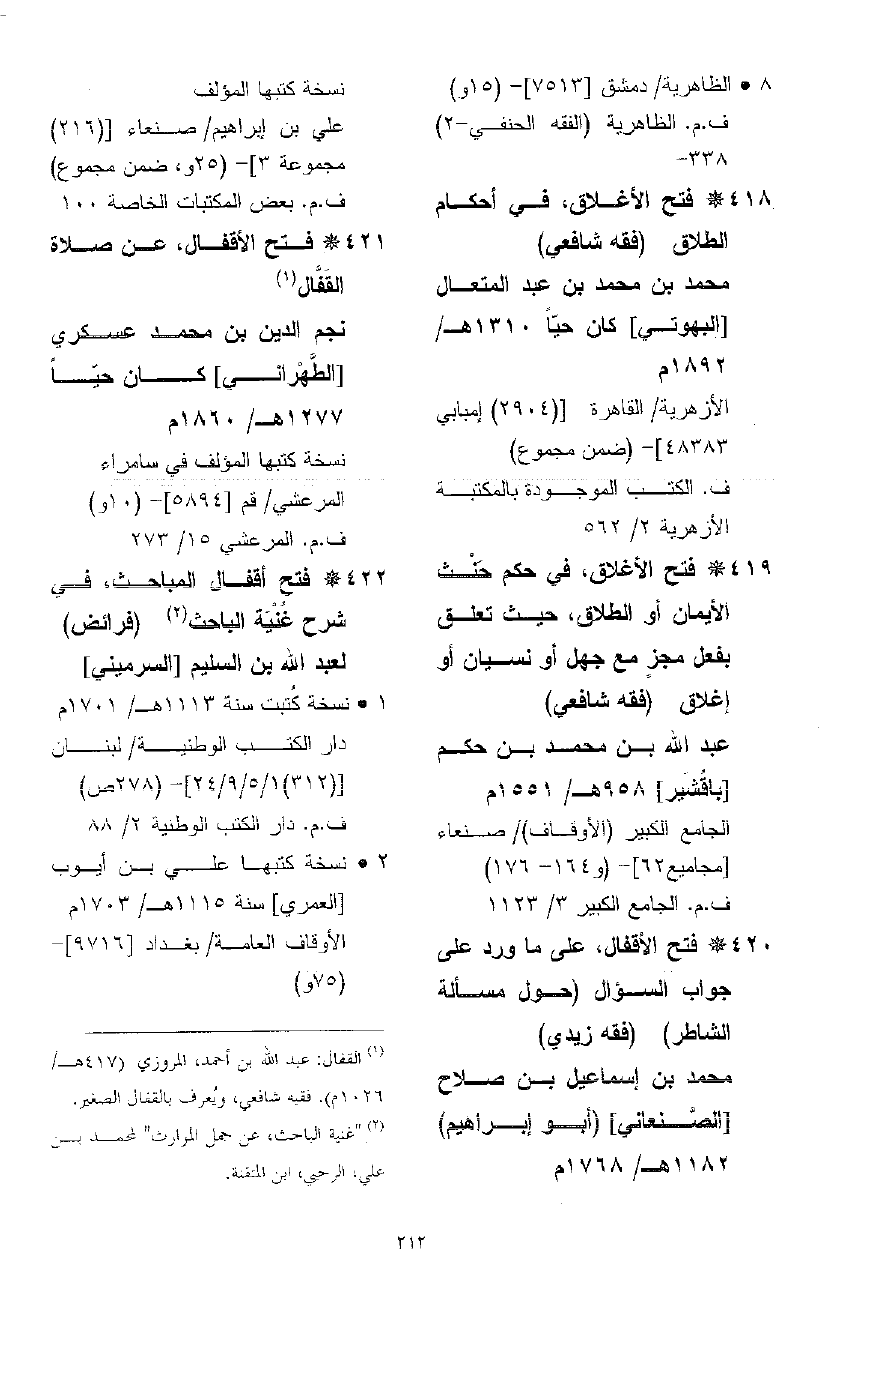 ٨ • الظاهرية/ دمشق [٧٥١٣]- (١٥و)
ف.م. الظاهرية (الفقه الحنفي-٢)
-٣٣٨
٤١٨* فتح الأغلاق، في أحكام
الطلاق (فقه شافعي)
محمد بن محمد بن عبد المتعال
[البهوتي] كان حيّاً ١٣١٠هـ/
١٨٩٢م
الأزهرية/ القاهرة [(٢٩٠٤) إمبابي
٤٨٣٨٣]- (ضمن مجموع)
ف. الكتب الموجودة بالمكتبة
الأزهرية ٢/ ٥٦٢
٤١٩* فتح الأغلاق، في حكم حَنْث
الأيمان أو الطلاق، حيث تعلق
بفعل مجزٍ مع جهل أو نسيان أو
إغلاق (فقه شافعي)
عبد الله بن محمد بن حكم
[باقُشَير] ٩٥٨هـ/ ١٥٥١م
الجامع الكبير (الأوقاف)/ صنعاء
[مجاميع٦٢]- (و١٦٤- ١٧٦)
ف.م. الجامع الكبير ٣/ ١١٢٣
٤٢٠* فتح الأقفال، على ما ورد على
جواب السؤال (حول مسألة
الشاطر) (فقه زيدي)
محمد بن إسماعيل بن صلاح
[الصَّنعاني] (أبو إبراهيم)
١١٨٢هـ/ ١٧٦٨م
نسخة كتبها المؤلف
علي بن إبراهيم/ صنعاء [(٢١٦)
مجموعة ٣]- (٢٥و، ضمن مجموع)
ف.م. بعض المكتبات الخاصة ١٠٠
٤٢١* فتح الأقفال، عن صلاة
القَفَّال(١)
نجم الدين بن محمد عسكري
[الطَّهْراني] كان حيّاً
١٢٧٧هـ/ ١٨٦٠م
نسخة كتبها المؤلف في سامراء
المرعشي/ قم [٥٨٩٤]- (١٠و)
ف.م. المرعشي ١٥/ ٢٧٣
٤٢٢* فتح أقفال المباحث، في
شرح غُنْيَة الباحث(٢) (فرائض)
لعبد الله بن السليم [السرميني]
١ • نسخة كُتبت سنة ١١١٣هـ/ ١٧٠١م
دار الكتب الوطنية/ لبنان
[(٣١٢)٢٤/٩/٥/١]- (٢٧٨ص)
ف.م. دار الكتب الوطنية ٢/ ٨٨
٢ • نسخة كتبها علي بن أيوب
[العمري] سنة ١١١٥هـ/ ١٧٠٣م
الأوقاف العامة/ بغداد [٩٧١٦]-
(٧٥و)
(١) القفال: عبد الله بن أحمد، المروزي (٤١٧هـ/
١٠٢٦م). فقيه شافعي، ويُعرف بالقفال الصغير.
(٢) "غنية الباحث، عن جمل الموارث" لمحمد بن
علي، الرحبي، ابن المتقنة.
٢١٢